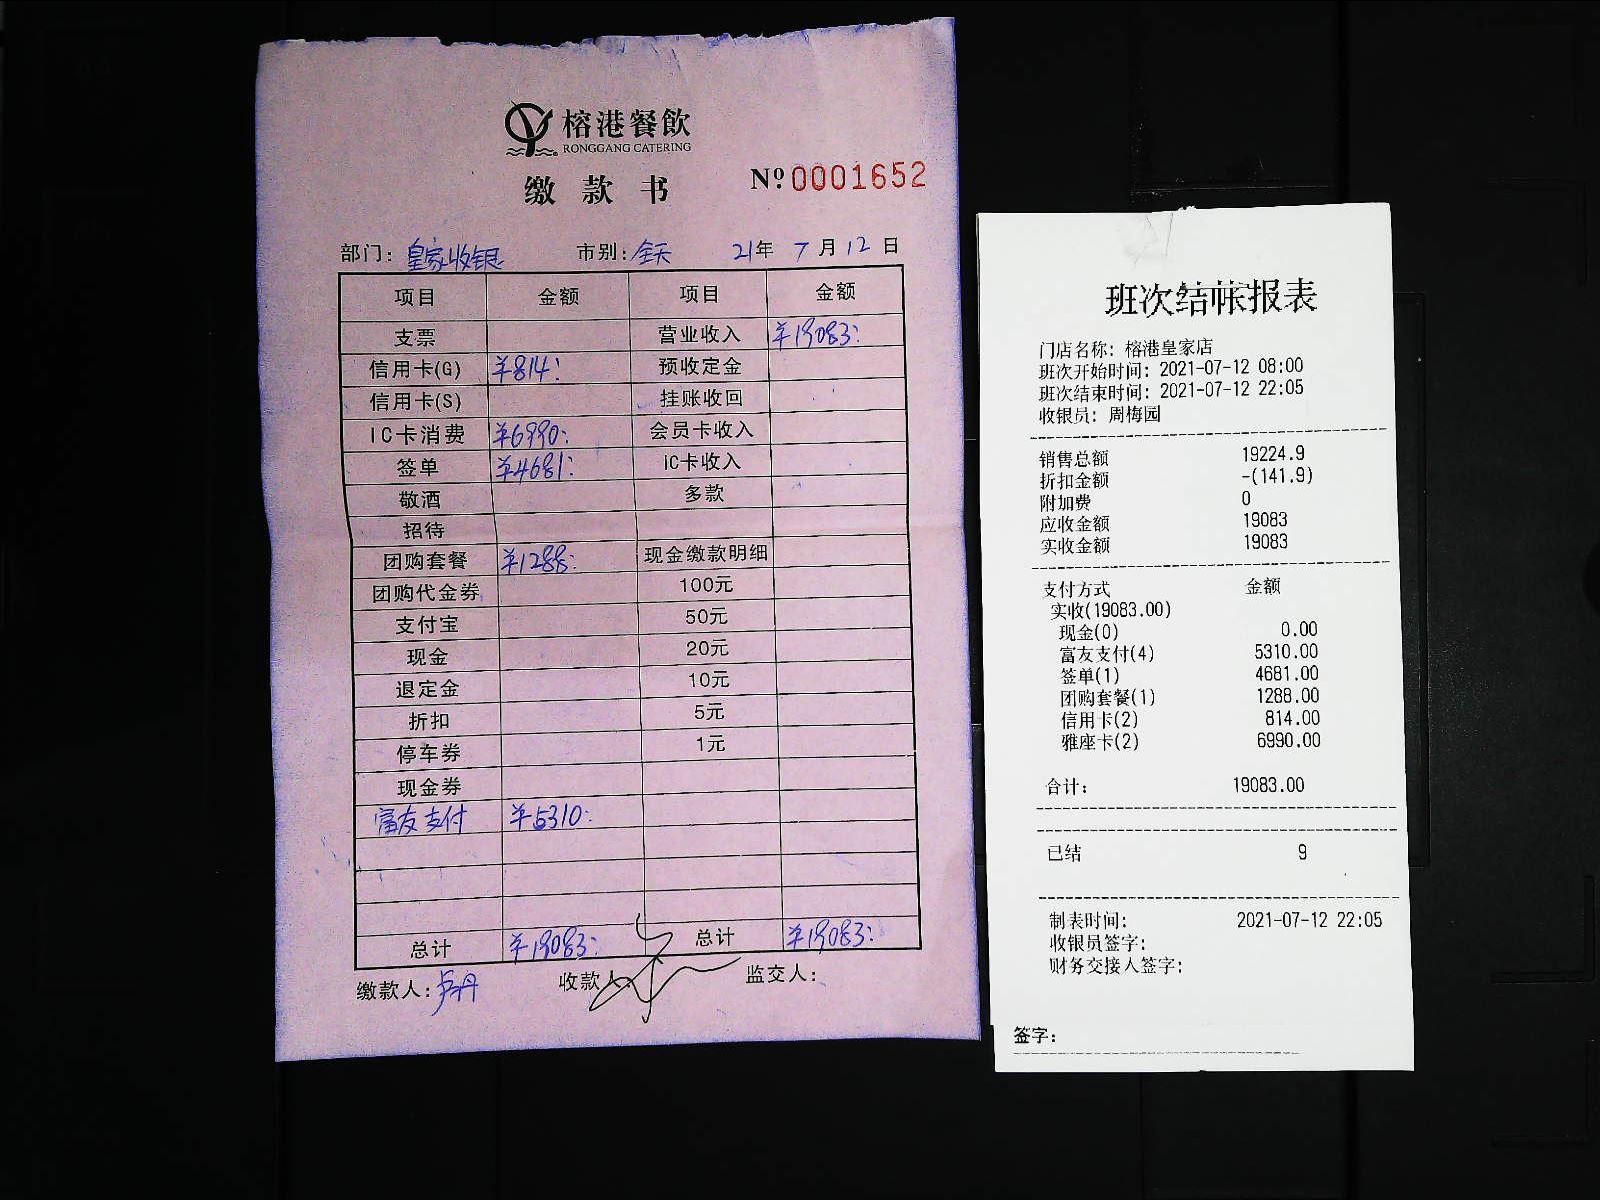 榕港餐飲
RONGGANG CATERING
缴款书
Nº 0001652
部门：皇家收银 市别：全天 21年 7月12日
项目 金额 项目 金额
支票 营业收入 ¥19083：
信用卡(G) ¥814： 预收定金
信用卡(S) 挂账收回
IC卡消费 ¥6990： 会员卡收入
签单 ¥4681： IC卡收入
敬酒 多款
招待
团购套餐 ¥1288： 现金缴款明细
团购代金券 100元
支付宝 50元
现金 20元
退定金 10元
折扣 5元
停车券 1元
现金券
富友支付 ¥5310：
总计 ¥19083： 总计 ¥19083：
缴款人：卢丹 收款人： 监交人：
班次结帐报表
门店名称: 榕港皇家店
班次开始时间: 2021-07-12 08:00
班次结束时间: 2021-07-12 22:05
收银员: 周梅园
销售总额 19224.9
折扣金额 -(141.9)
附加费 0
应收金额 19083
实收金额 19083
支付方式 金额
实收(19083.00)
现金(0) 0.00
富友支付(4) 5310.00
签单(1) 4681.00
团购套餐(1) 1288.00
信用卡(2) 814.00
雅座卡(2) 6990.00
合计: 19083.00
已结 9
制表时间: 2021-07-12 22:05
收银员签字:
财务交接人签字:
签字: